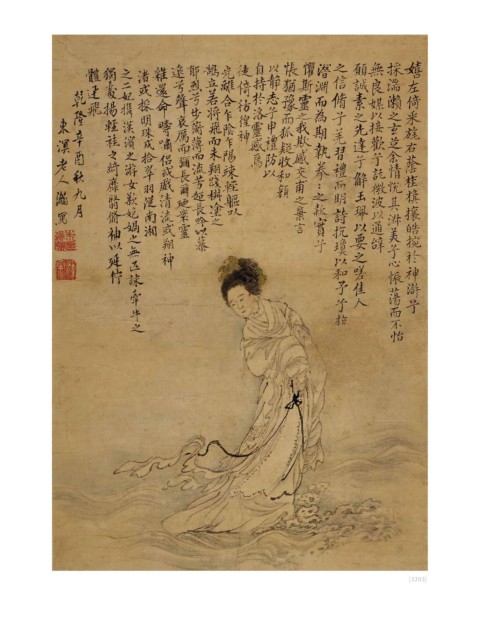 嬉左倚采旄右蔭桂旗攘皓椀於神滸兮
採湍瀨之玄芝余情悅其淑美兮心振蕩而不怡
無良媒以接歡兮託微波以通辭
願誠素之先達兮解玉珮以要之嗟佳人
之信脩兮羌習禮而明詩抗瓊以和予兮指
潛淵而為期執眷〻之款實兮
懼斯靈之我欺感交甫之棄言
悵猶豫而狐疑收和顏
以靜志兮申禮防以
自持於洛靈感焉
徙倚彷徨神
光離合乍陰乍陽竦輕軀以
鶴立若將飛而未翔踐椒塗之
郁烈兮步蘅薄而流芳超長吟以慕
遠兮聲哀厲而彌長爾迺衆靈
雜遝命疇嘯侶或戲清流或翔神
渚或採明珠或拾翠羽從南湘
之二妃携漢濱之游女歎匏瓜之無匹詠牽牛之
獨處揚輕袿之綺靡翳脩袖以延佇
體迅飛
乾隆辛酉秋九月
東溟老人瀚寫